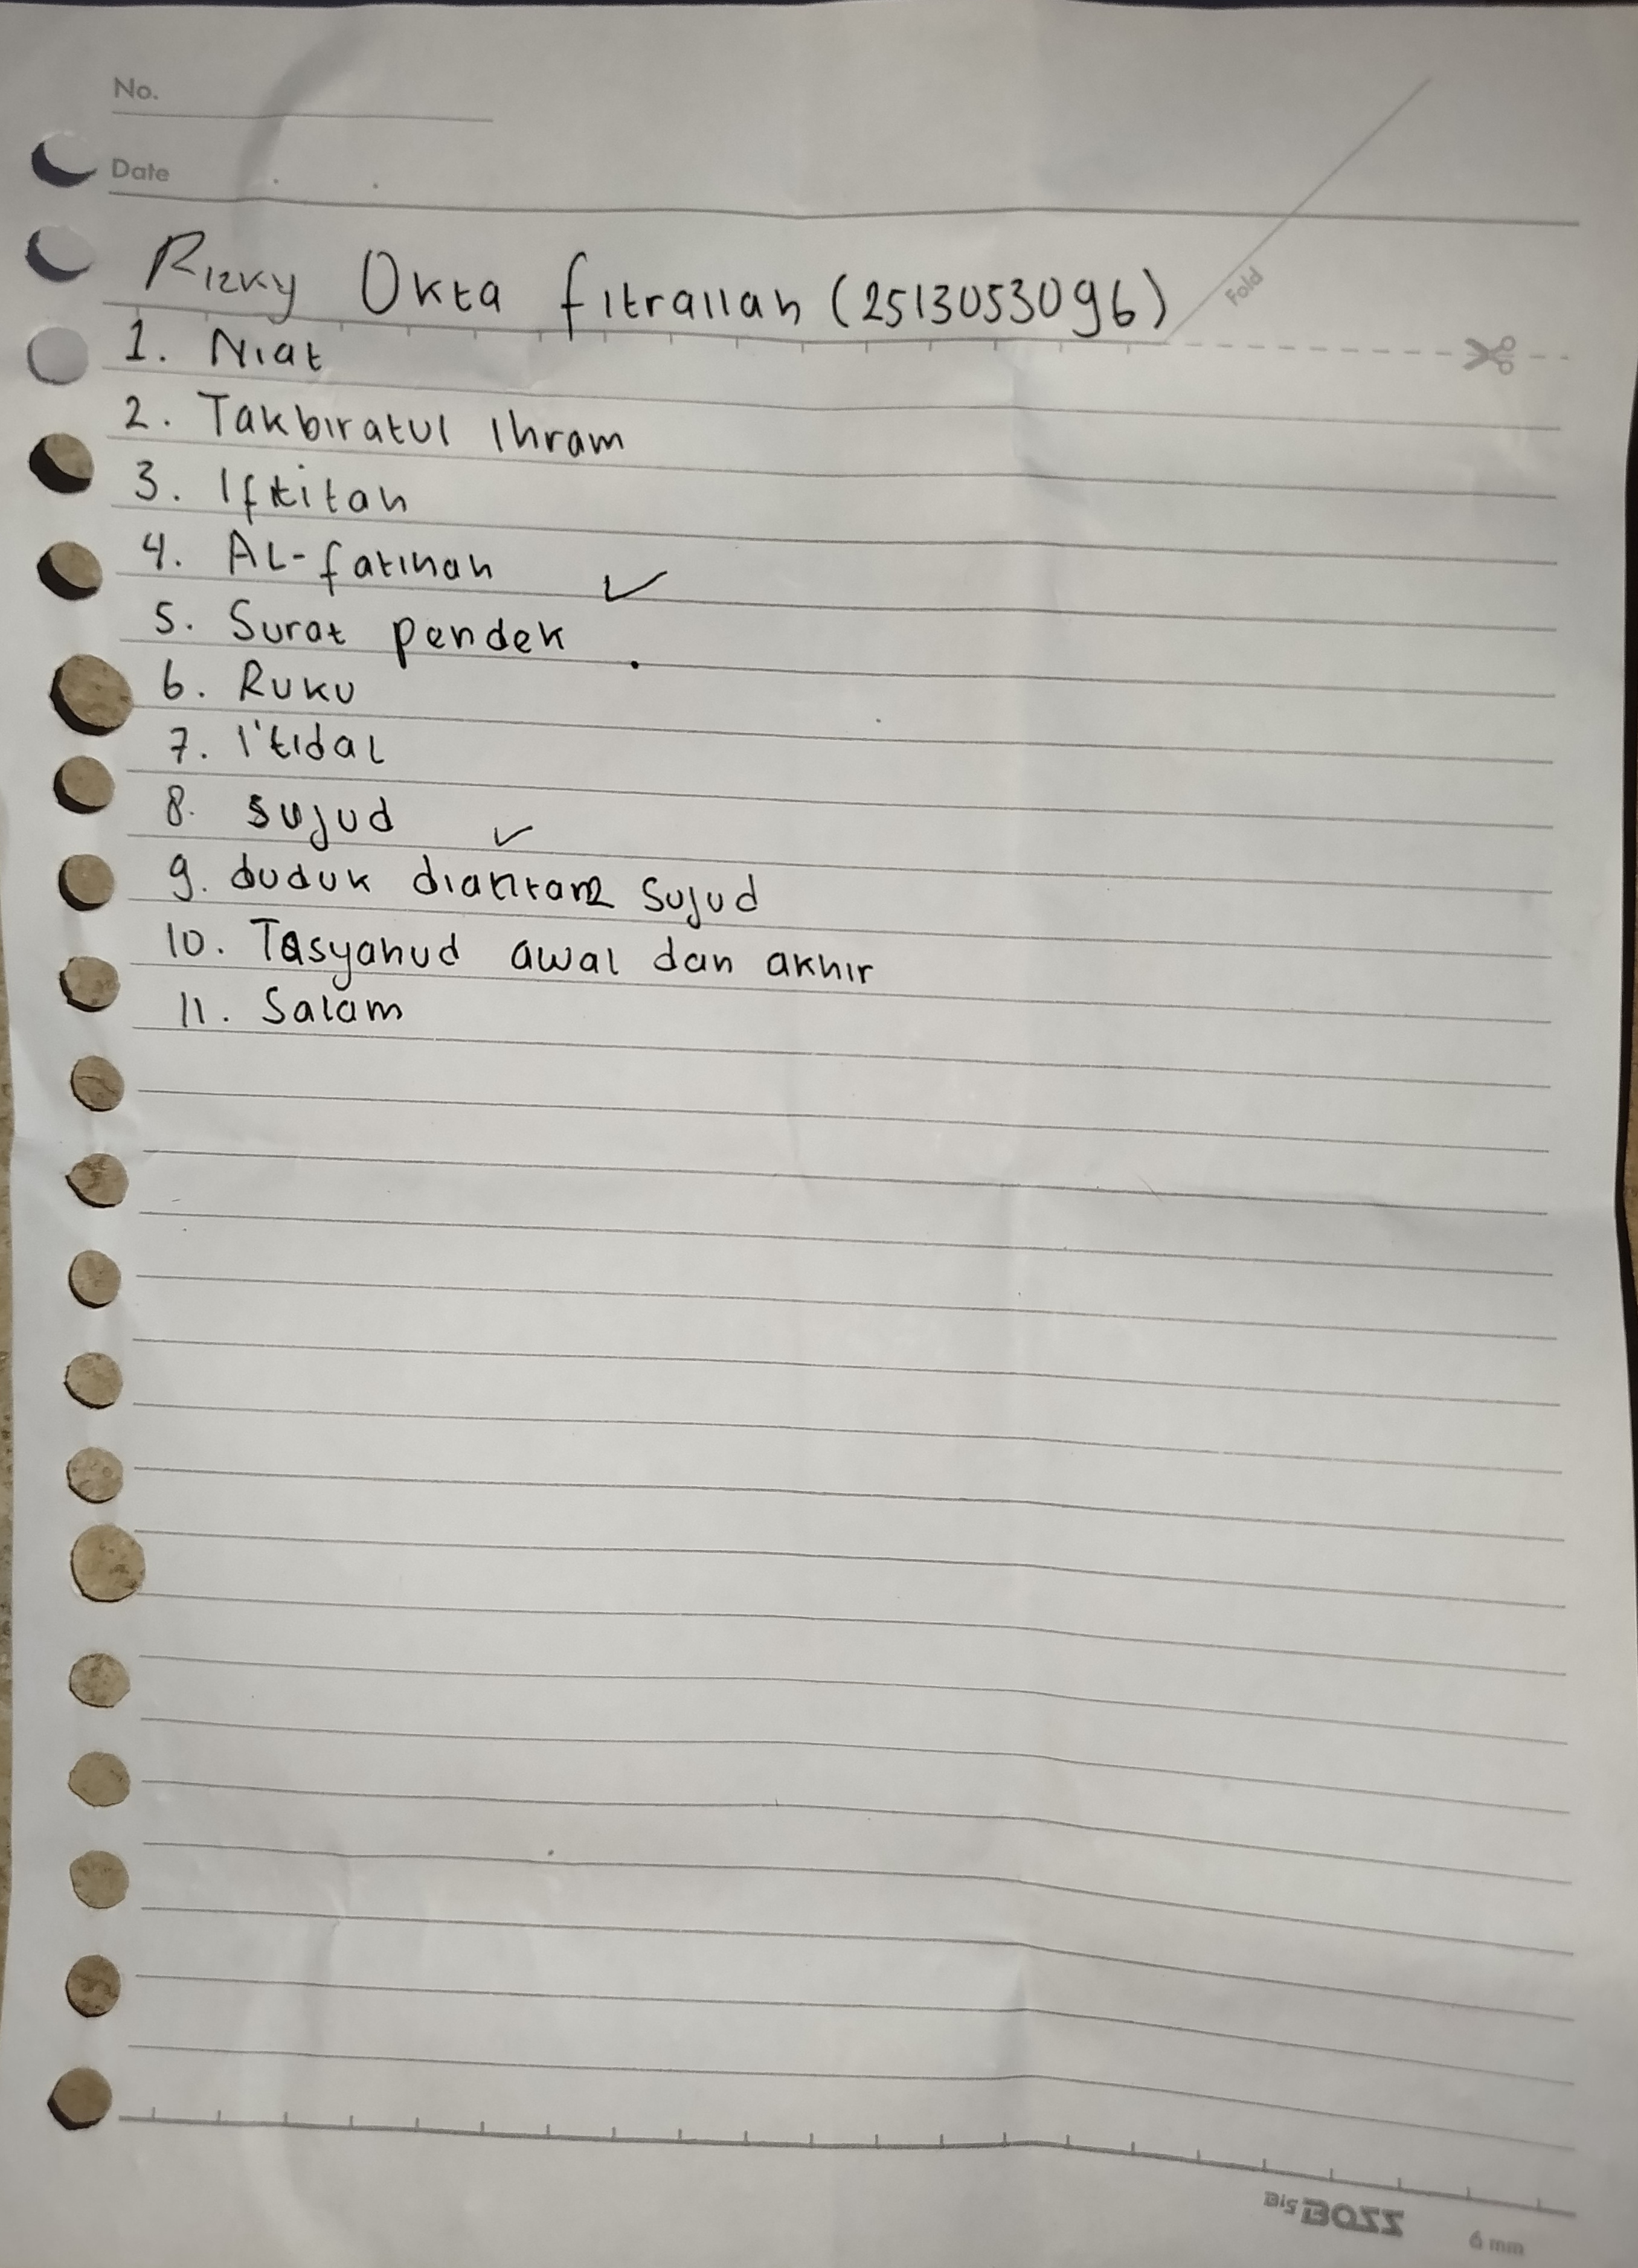 No.
Date
Rizky Okta fitrallah (2513053096)
Fold
1. Niat
2. Takbiratul Ihram
3. Iftitah
4. AL-fatihah ✓
5. Surat pendek .
6. Ruku
7. I'tidal
8. Sujud ✓
9. duduk diantara2 Sujud
10. Tasyahud awal dan akhir
11. Salam
Big BOSS
6 mm